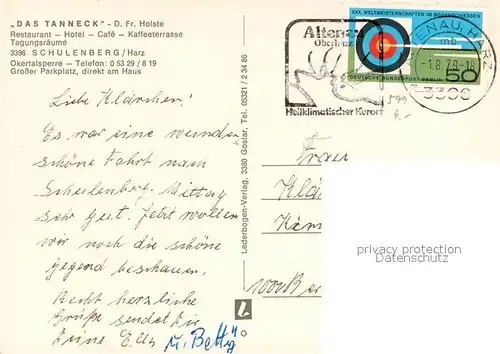 „DAS TANNECK" - D. Fr. Holste
Restaurant — Hotel — Café — Kaffeeterrasse
Tagungsräume
3396 SCHULENBERG / Harz
Okertalsperre — Telefon: 0 53 29 / 8 19
Großer Parkplatz, direkt am Haus
Liebe Klärchen!
Es war eine wunder-
schöne Fahrt nach
Schulenberg. Mittag
sehr gut. Jetzt wollen
wir noch die schöne
gegend beschauen.
Recht herzliche
Grüße sendet Dir
Deine Elly u. Betty
Lederbogen-Verlag, 3380 Goslar, Tel. 05321 / 2 34 86
Altenau
Oberharz
Heilklimatischer Kurort
XXX. WELTMEISTERSCHAFTEN IM BOGENSCHIESSEN
DEUTSCHE BUNDESPOST BERLIN
50
ALTENAU, HARZ
mb
-1.8.79-18
3396
599
6,-
Frau
Klä
protected by copyright
protected by copyright